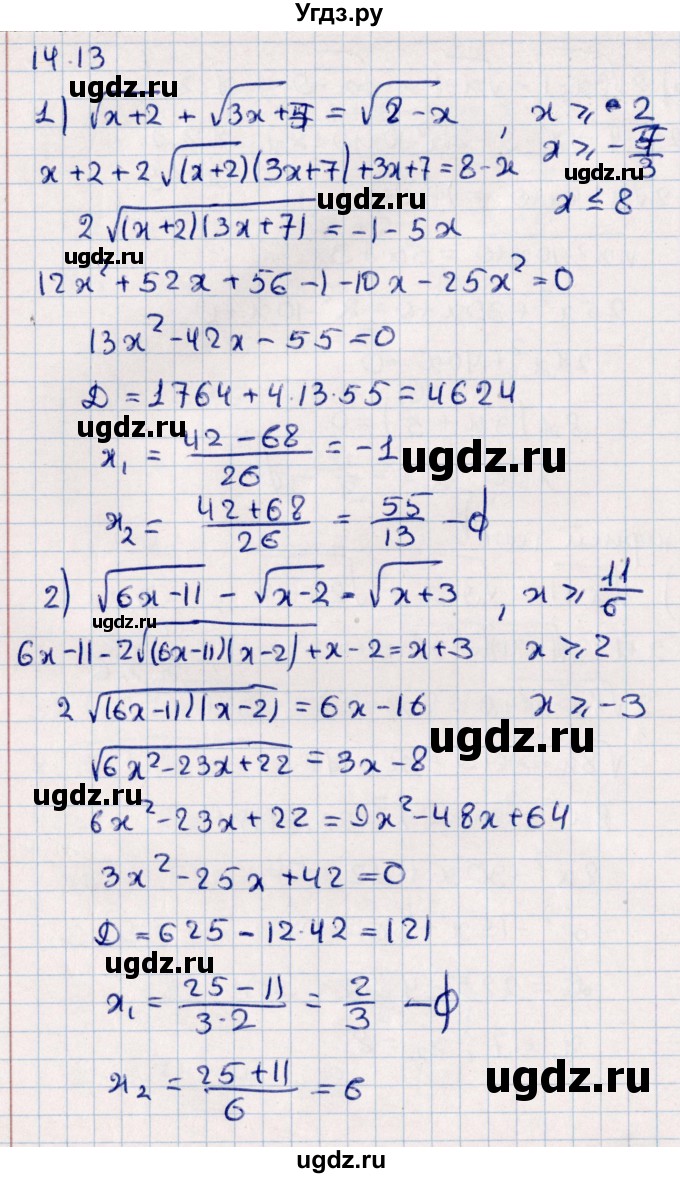 Угдз.ру
14.13
1) √x+2 + √3x+7 = √8-x , x ≥ -2
ugdz.ru
x+2+2√(x+2)(3x+7)+3x+7=8-x x ≥ -7/3
ugdz.ru
2√(x+2)(3x+7) = -1-5x x ≤ 8
ugdz.ru
12x²+52x+56-1-10x-25x²=0
13x²-42x-55=0
D=1764+4·13·55=4624
x₁ = (42-68)/26 = -1
ugdz.ru
ugdz.ru
x₂ = (42+68)/26 = 55/13 -ϕ
2) √6x-11 - √x-2 = √x+3 , x ≥ 11/6
ugdz.ru
6x-11-2√(6x-11)(x-2)+x-2=x+3 x ≥ 2
2√(6x-11)(x-2) = 6x-16 x ≥ -3
ugdz.ru
√6x²-23x+22 = 3x-8
ugdz.ru
6x²-23x+22=9x²-48x+64
3x²-25x+42=0
D=625-12·42=121
ugdz.ru
x₁ = (25-11)/(3·2) = 2/3 -ϕ
x₂ = (25+11)/6 = 6
ugdz.ru
ugdz.ru
ugdz.ru